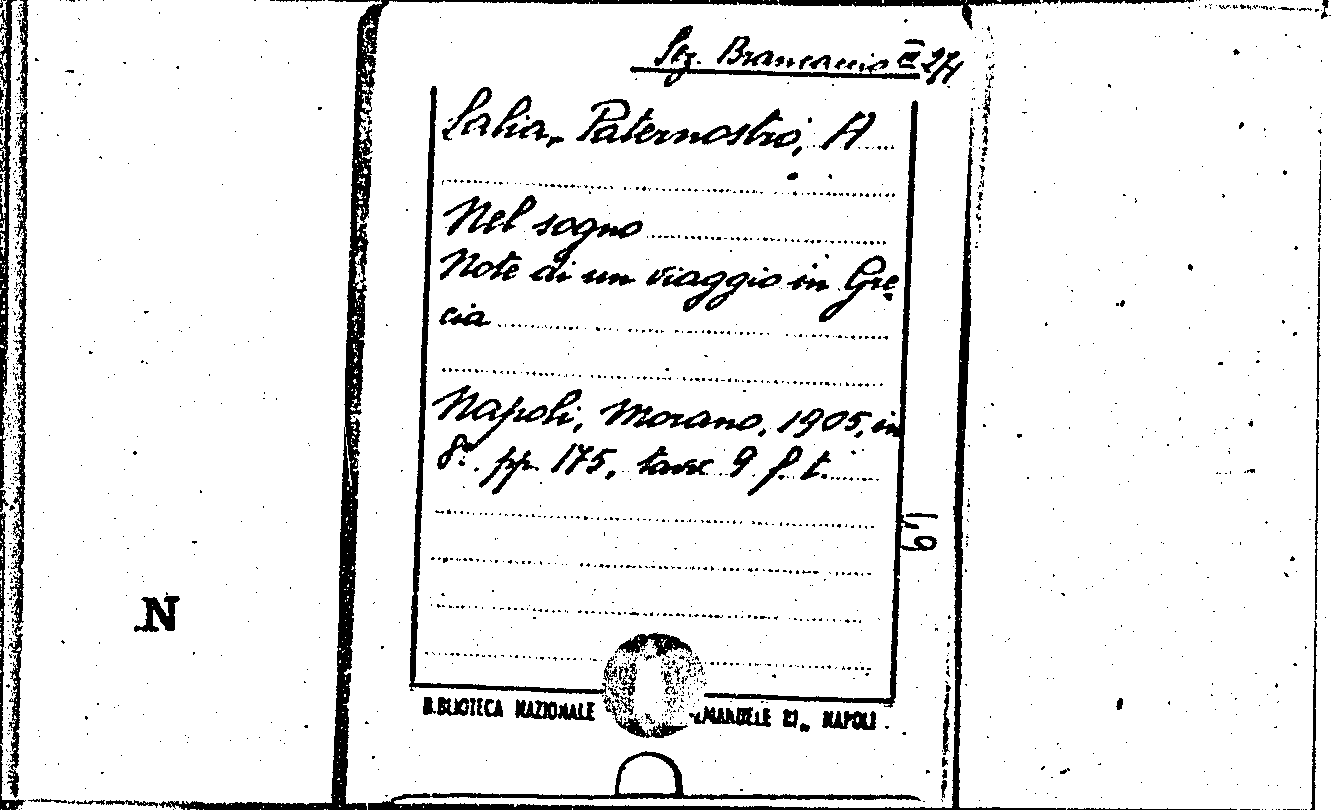 Sez. Brancaccio
Salia, Paternostro, A
Nel sogno
Note di un viaggio in Gre
cia
Napoli, Morano, 1905, in
8° pp. 175, tavv 9 f. t.
67
N
BIBLIOTECA NAZIONALE EMANUELE III„ NAPOLI